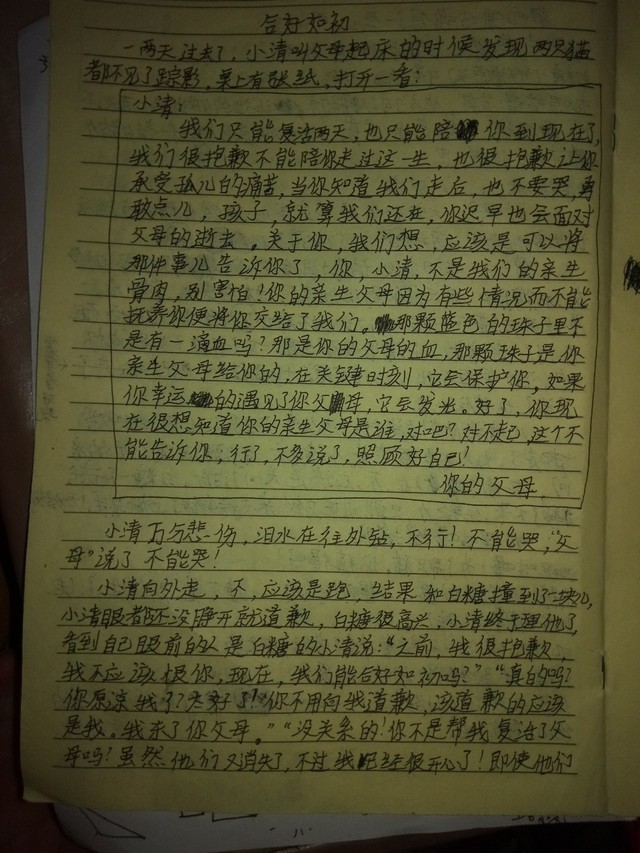 合好如初
一两天过去了，小清叫父母起床的时候发现两只猫
都不见了踪影，桌上有张纸，打开一看：
小清：
我们只能复活两天，也只能陪你到现在了，
我们很抱歉不能陪你走过这一生，也很抱歉让你
承受孤儿的痛苦，当你知道我们走后，也不要哭，勇
敢点儿，孩子，就算我们还在，你迟早也会面对
父母的逝去。关于你，我们想，应该是可以将
那件事儿告诉你了，你，小清，不是我们的亲生
骨肉，别害怕！你的亲生父母因为有些情况而不能
抚养你便将你交给了我们。那颗蓝色的珠子里不
是有一滴血吗？那是你的父母的血，那颗珠子是你
亲生父母给你的，在关键时刻，它会保护你，如果
你幸运的遇见了你父母，它会发光。好了，你现
在很想知道你的亲生父母是谁，对吧？对不起，这个不
能告诉你；行了，不多说了，照顾好自己！
你的父母
小清万分悲伤，泪水在往外钻，不行！不能哭，“父
母”说了不能哭！
小清向外走，不，应该是跑，结果和白糖撞到了一块儿，
小清眼都还没睁开就道歉，白糖很高兴，小清终于理他了，
看到自己眼前的人是白糖的小清说：“之前，我很抱歉，
我不应该恨你，现在，我们能合好如初吗？”“真的吗？
你原凉我了？太好了！你不用向我道歉，该道歉的应该
是我。我杀了你父母。”“没关系的！你不是帮我复活了父
母吗？虽然他们又消失了，不过我已经很开心了！即使他们